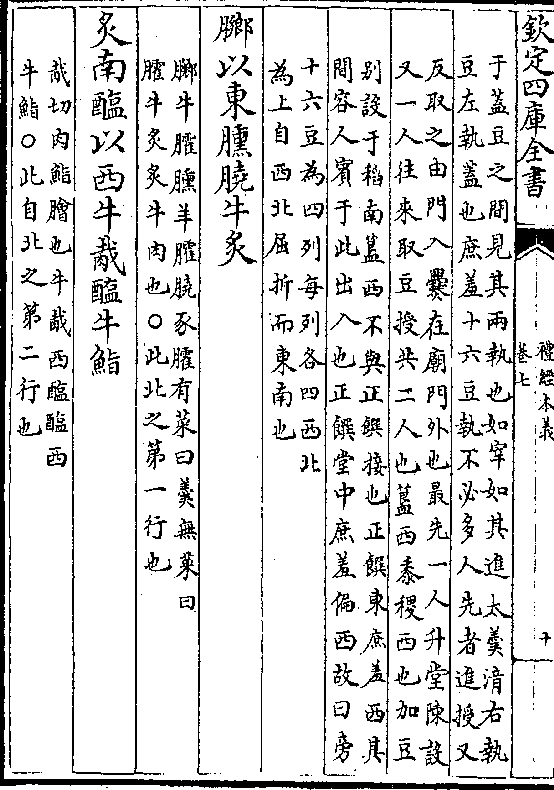 欽定四庫全書
禮經本義
卷七
十
于蓋豆之間見其兩執也如宰如其進太羮湆右執
豆左執蓋也庶羞十六豆執不必多人先者進授又
反取之由門入爨在廟門外也最先一人升堂陳設
又一人往來取豆授共二人也簋西黍稷西也加豆
别設于稻南簋西不與正饌接也正饌東庶羞西具
間容人賓于此出入也正饌堂中庶羞偏西故曰旁
十六豆為四列每列各四西北
為上自西北屈折而東南也
膷以東臐膮牛炙
膷牛臛臐羊臛膮豕臛有菜曰羮無菜曰
臛牛炙炙牛肉也○此北之第一行也
炙南醢以西牛胾醢牛鮨
胾切肉鮨膾也牛胾西醢醢西
牛鮨○此自北之第二行也